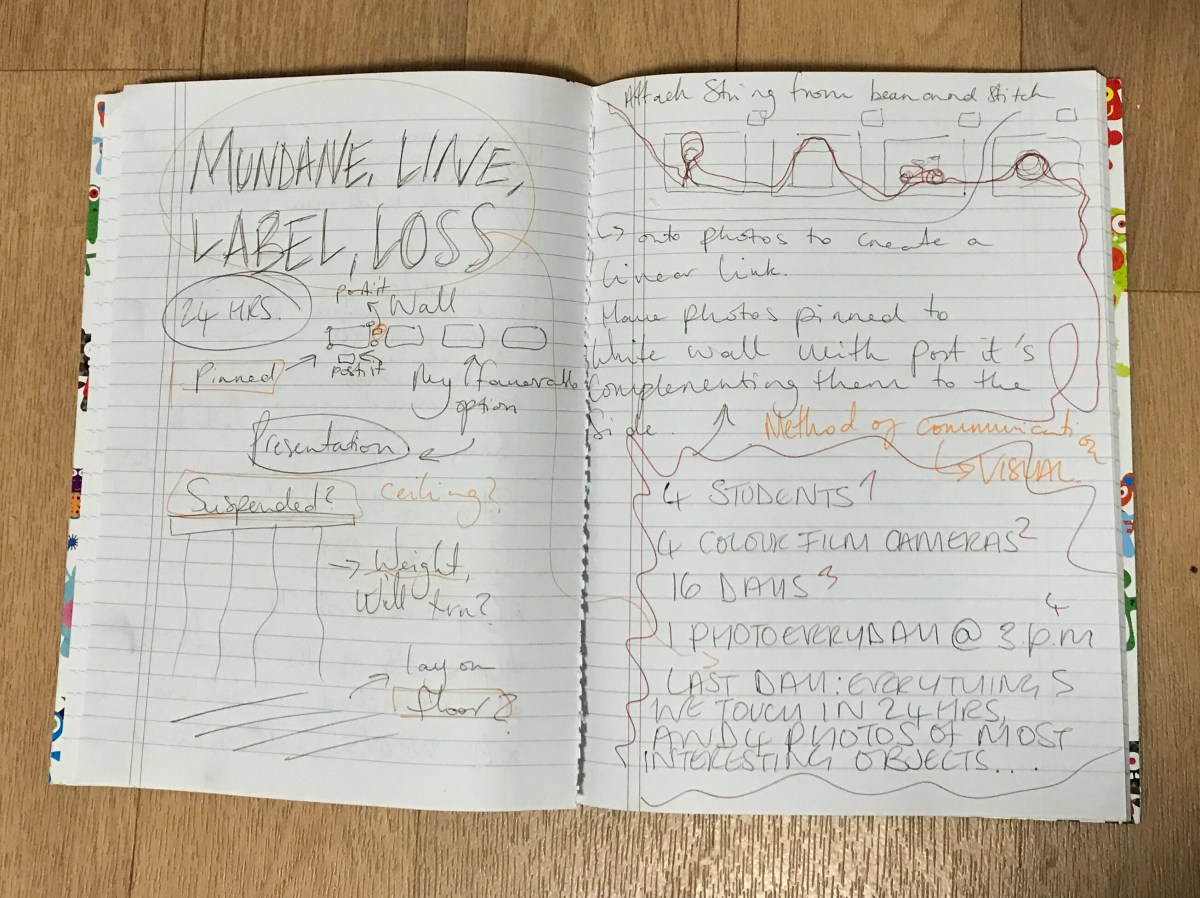 MUNDANE, LINE,
LABEL, LOSS
24 HRS.
post it
Wall
Pinned
post it
My favourable
option
Presentation
Suspended?
Ceiling?
→ Weight,
Will
lay on
floor?
Attach String from and Stitch
↳ onto photos to create a
linear link.
Have photos pinned to
White wall with post it's
Complementing them to the
side.
Method of communication
↳ VISUAL.
4 STUDENTS 1
4 COLOUR FILM CAMERAS 2
16 DAYS 3
1 PHOTO EVERYDAY @ 3 p.m 4
LAST DAY: EVERYTHING 5
WE TOUCH IN 24 HRS,
AND 4 PHOTOS OF MOST
INTERESTING OBJECTS....